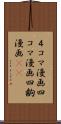 ４コマ漫画四
コマ漫画四駒
漫画